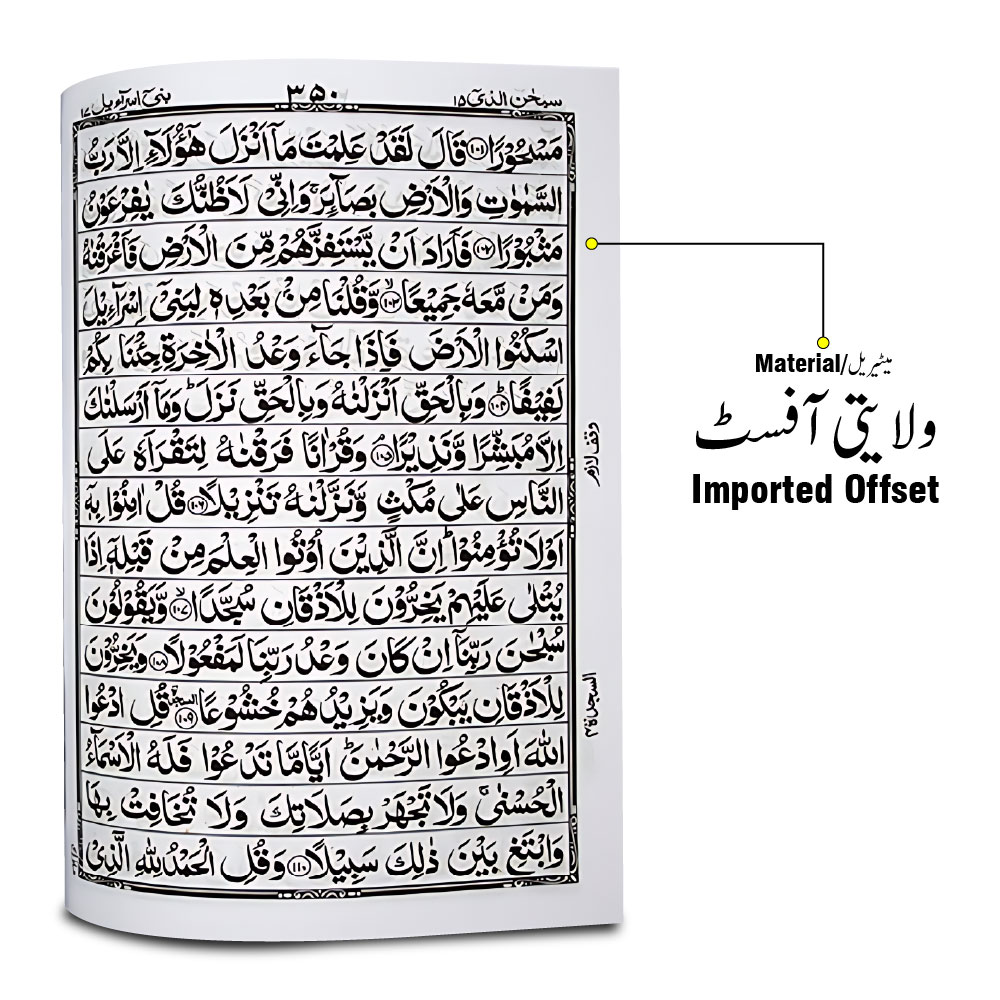 سبحٰن الذیٓ ۱۵
۳۵۰
بنیٓ اسرآءیل ۱۷
مَسْحُوْرًا ﴿۱۰۱﴾ قَالَ لَقَدْ عَلِمْتَ مَاۤ اَنْزَلَ هٰۤؤُلَآءِ اِلَّا رَبُّ
السَّمٰوٰتِ وَالْاَرْضِ بَصَآئِرَ ۚ وَاِنِّیْ لَاَظُنُّكَ یٰفِرْعَوْنُ
مَثْبُوْرًا ﴿۱۰۲﴾ فَاَرَادَ اَنْ یَّسْتَفِزَّهُمْ مِّنَ الْاَرْضِ فَاَغْرَقْنٰهُ
وَمَنْ مَّعَهٗ جَمِیْعًا ﴿۱۰۳﴾ۙ وَّقُلْنَا مِنْۢ بَعْدِهٖ لِبَنِیْۤ اِسْرَآءِیْلَ
اسْكُنُوا الْاَرْضَ فَاِذَا جَآءَ وَعْدُ الْاٰخِرَةِ جِئْنَا بِكُمْ
لَفِیْفًا ﴿۱۰۴﴾ؕ وَبِالْحَقِّ اَنْزَلْنٰهُ وَبِالْحَقِّ نَزَلَ ؕ وَمَاۤ اَرْسَلْنٰكَ
اِلَّا مُبَشِّرًا وَّنَذِیْرًا ﴿۱۰۵﴾ۘ وَقُرْاٰنًا فَرَقْنٰهُ لِتَقْرَاَهٗ عَلَی
النَّاسِ عَلٰی مُكْثٍ وَّنَزَّلْنٰهُ تَنْزِیْلًا ﴿۱۰۶﴾ قُلْ اٰمِنُوْا بِهٖۤ
اَوْ لَا تُؤْمِنُوْا ؕ اِنَّ الَّذِیْنَ اُوْتُوا الْعِلْمَ مِنْ قَبْلِهٖۤ اِذَا
یُتْلٰی عَلَیْهِمْ یَخِرُّوْنَ لِلْاَذْقَانِ سُجَّدًا ﴿۱۰۷﴾ۙ وَّیَقُوْلُوْنَ
سُبْحٰنَ رَبِّنَاۤ اِنْ كَانَ وَعْدُ رَبِّنَا لَمَفْعُوْلًا ﴿۱۰۸﴾ وَیَخِرُّوْنَ
لِلْاَذْقَانِ یَبْكُوْنَ وَیَزِیْدُهُمْ خُشُوْعًا ﴿۱۰۹﴾ السجدة قُلِ ادْعُوا
اللّٰهَ اَوِ ادْعُوا الرَّحْمٰنَ ؕ اَیًّا مَّا تَدْعُوْا فَلَهُ الْاَسْمَآءُ
الْحُسْنٰی ۚ وَلَا تَجْهَرْ بِصَلَاتِكَ وَلَا تُخَافِتْ بِهَا
وَابْتَغِ بَیْنَ ذٰلِكَ سَبِیْلًا ﴿۱۱۰﴾ وَقُلِ الْحَمْدُ لِلّٰهِ الَّذِیْ
وقف لازم
السجدة ۴
Material/میٹیریل
ولایتی آفسٹ
Imported Offset